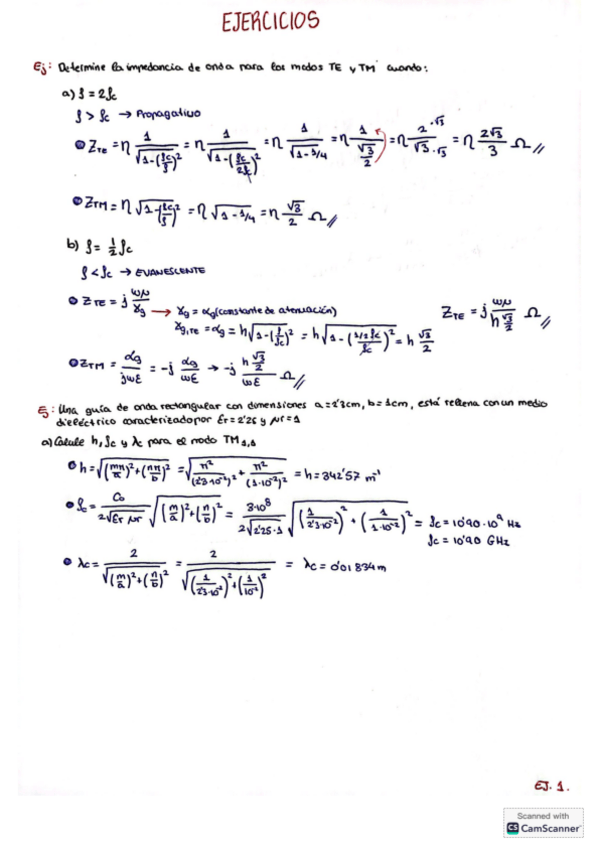 EJERCICIOS
Ej: Determine la impedancia de onda para los modos TE y TM cuando:
a) f = 2fc
f > fc → Propagativo
• Z_TE = η 1/√(1-(fc/f)²) = η 1/√(1-(fc/2fc)²) = η 1/√(1-1/4) = η 1/(√3/2) = η 2·√3/√3·√3 = η 2√3/3 Ω //
• Z_TM = η √(1-(fc/f)²) = η √(1-1/4) = η √3/2 Ω //
b) f = 1/2 fc
f < fc → EVANESCENTE
• Z_TE = j ωμ/γg → γg = αg (constante de atenuación)
γg,TE = αg = h√(1-(f/fc)²) = h√(1-(1/2 fc/fc)²) = h √3/2
Z_TE = j ωμ/(h √3/2) Ω //
• Z_TM = αg/jωε = -j αg/ωε → -j (h √3/2)/ωε Ω //
Ej: Una guía de onda rectangular con dimensiones a=2'3cm, b=1cm, está rellena con un medio
dieléctrico caracterizado por εr=2'25 y μr=1
a) Calcule h, fc y λc para el modo TM1,1
• h = √((mπ/a)²+(nπ/b)²) = √(π²/(2'3·10⁻²)² + π²/(1·10⁻²)²) = h = 342'57 m⁻¹
• fc = C₀/(2√(εr μr)) √((m/a)²+(n/b)²) = 3·10⁸/(2√(2'25·1)) √((1/2'3·10⁻²)² + (1/1·10⁻²)²) = fc = 10'90·10⁹ Hz
fc = 10'90 GHz
• λc = 2/√((m/a)²+(n/b)²) = 2/√((1/2'3·10⁻²)²+(1/10⁻²)²) = λc = 0'01834m
EJ. 1.
Scanned with
CS CamScanner